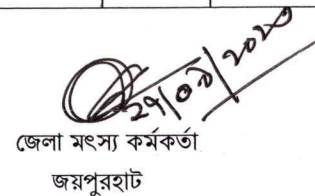 ২৭/০৯/২০২৩
জেলা মৎস্য কর্মকর্তা
জয়পুরহাট